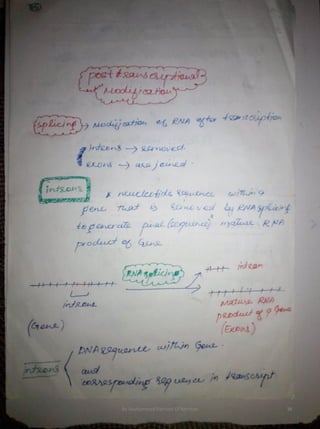 post transcriptional
Modification
splicing → Modification of RNA after transcription
introns → removed.
exons → are joined.
introns * nucleotide sequence within a
gene that is removed by RNA splicing
to generate final (sequence) mature RNA
product of Gene
RNA splicing
intron
introns
(Gene)
Mature RNA
product of a Gene
(Exons)
introns
DNA sequence within Gene.
and
corresponding sequence in transcript